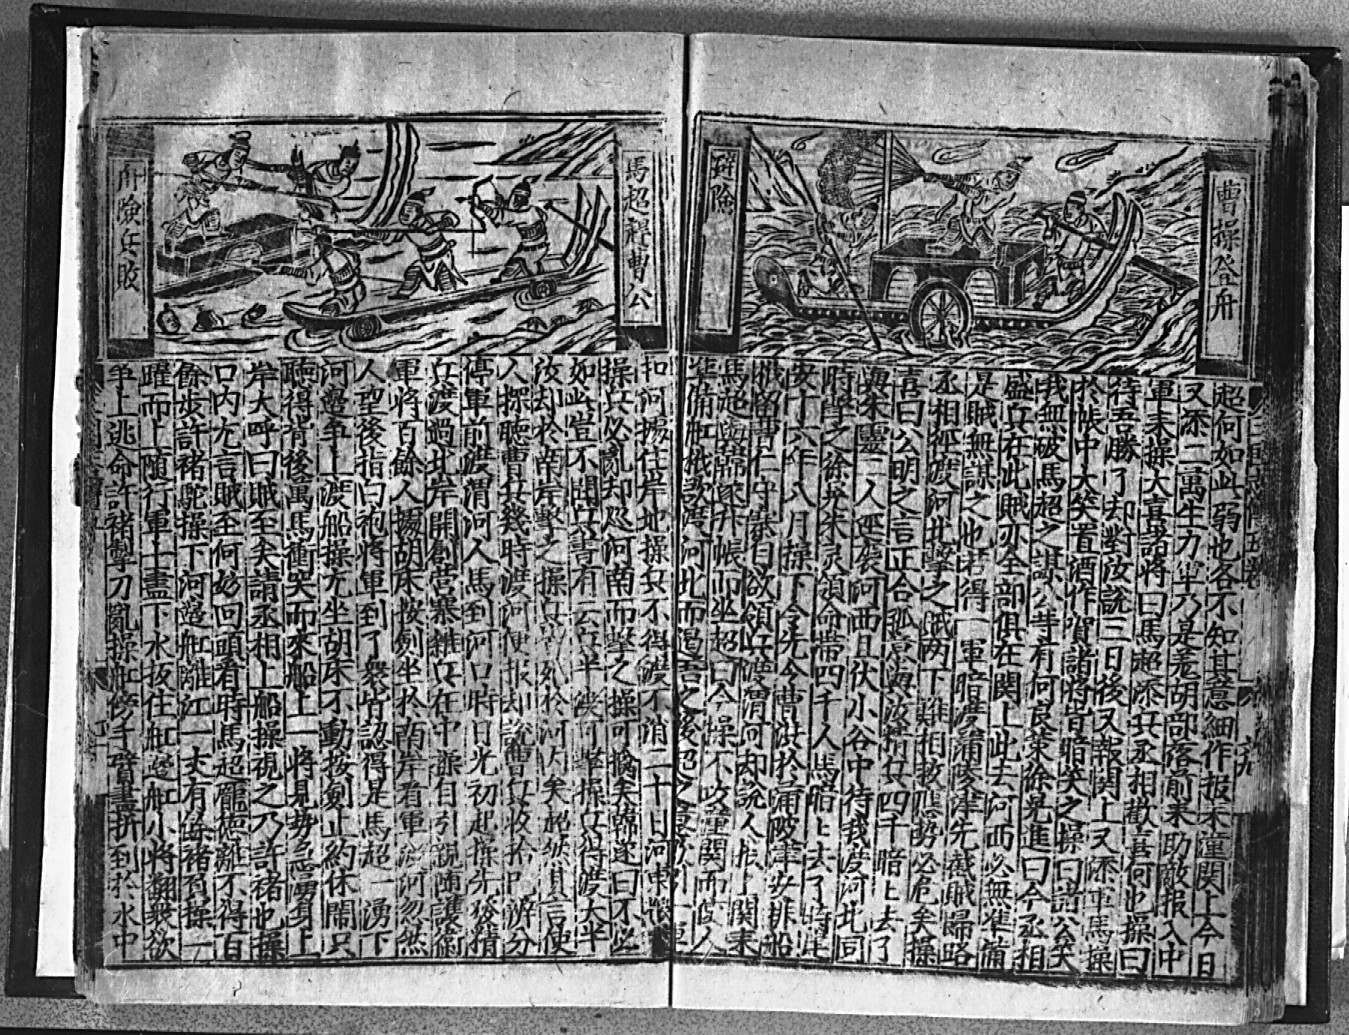 曹操登舟
避險
超何如此弱也各不知其意細作报來潼関上今日
又添二萬生力軍乃是羌胡部落前來助敵报入中
軍來操大喜諸將曰馬超添兵丞相歡喜何也操曰
待吾勝了却對汝說三日後又報関上又添軍馬操
於帳中大笑置酒作賀諸將皆暗笑之操曰諸公笑
我無破馬超之謀公等有何良策徐晃進曰今丞相
盛兵在此賊亦全部俱在関上此去河西必無準備
是賊無謀之也若得一軍暗渡蒲坂津先截賊歸路
丞相孤渡河北擊之賊两下難相救應勢必危矣操
言曰公明之言正合孤意與汝精兵四千暗上去了
與朱靈二人逕襲河西且伏小谷中待我渡河北同
時擊之徐晃朱灵領命帶四千人馬暗上去了時建
安十六年八月操下令先令曹洪於蒲坂津安排船
筏留曹仁守寨自欲領兵渡渭河却說人报了関來
馬超與韓遂升帳而坐超曰今操不攻潼関而使人
準備舡筏欲渡河北
馬超
曹公
舟險兵敗
扣河據住岸地操兵不得渡不消二十日河中糧
操兵必亂却巡河南而擊之操可擒矣韓遂曰不必
如此豈不聞兵書有云兵半渡可擊操兵得渡大半
汝却於南岸擊之操兵皆死於河内矣超然其言使
人探聽曹兵幾時渡河便报却說曹兵收拾已辦分
停軍前渡渭河人馬到河口時日光初起操先發精
兵渡過北岸開創營寨雜兵在中操自引親随護衛
軍將百餘人據胡床按劍坐於南岸看軍渡河忽然
人望後指白袍將軍到了衆皆認得是馬超一湧下
河邊争上渡船操尢坐胡床不動按劍止約休鬧只
聽得背後萬馬衝突而來船上一將見勢急湧身上
岸大呼曰賊至矣請丞相上船操視之乃許褚也操
口内尢言賊至何妨回頭看時馬超龐德離不得百
餘步許褚駝操下河邊舡離江一丈有餘褚負操一
躍而上随行軍士盡下水扳住舡邊舡小將翻衆欲
争上逃命許褚掣刀亂操舡傍手臂盡拼到於水中